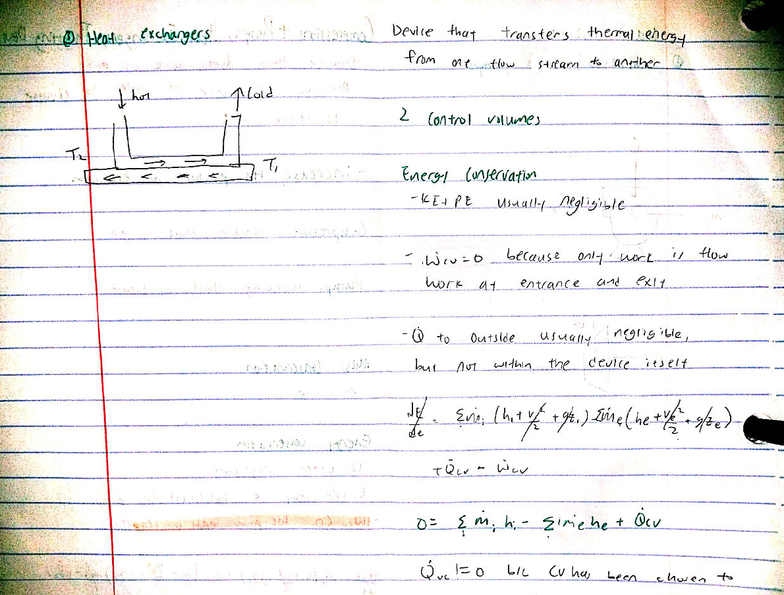 ① Heat exchangers
Device that transfers thermal energy
from one flow stream to another
hot
cold
T₂
T₁
2 control volumes
Energy Conservation
- KE + PE usually negligible
- Ẇcv = 0 because only work is flow
work at entrance and exit
- Q̇ to outside usually negligible,
but not within the device itself
dE/dt = Σṁᵢ (hᵢ + Vᵢ²/2 + gzᵢ) Σṁₑ (hₑ + Vₑ²/2 + gzₑ)
+ Q̇cv - Ẇcv
0 = Σ ṁᵢ hᵢ - Σ ṁₑ hₑ + Q̇cv
Q̇vc != 0 b/c CV has been chosen to